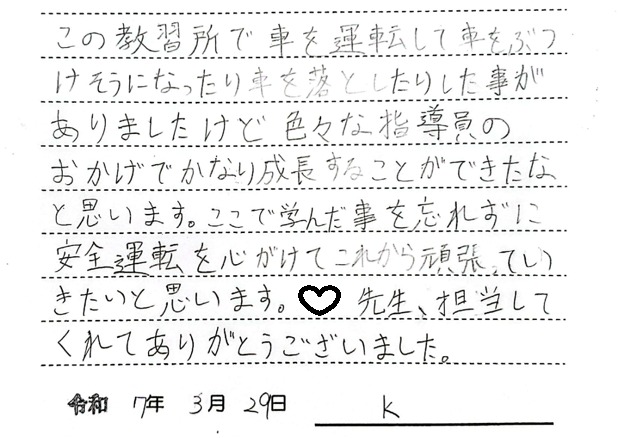 この教習所で車を運転して車をぶつ
けそうになったり車を落としたりした事が
ありましたけど色々な指導員の
おかげでかなり成長することができたな
と思います。ここで学んだ事を忘れずに
安全運転を心がけてこれから頑張ってい
きたいと思います。♡先生、担当して
くれてありがとうございました。
令和 7年 3月 29日 K